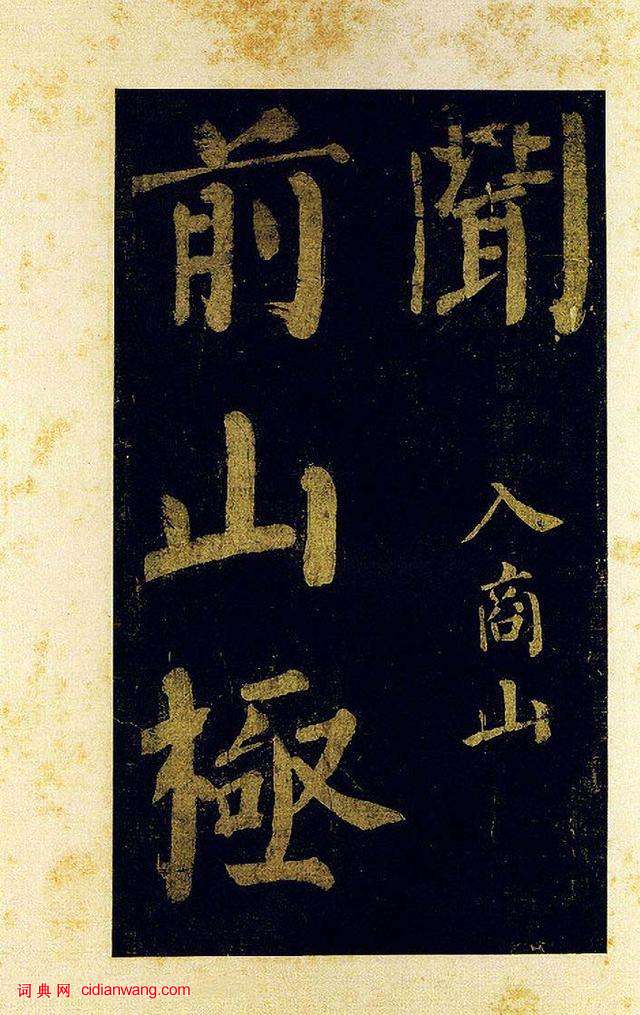 聞
入商山
前山極
词典网 cidianwang.com